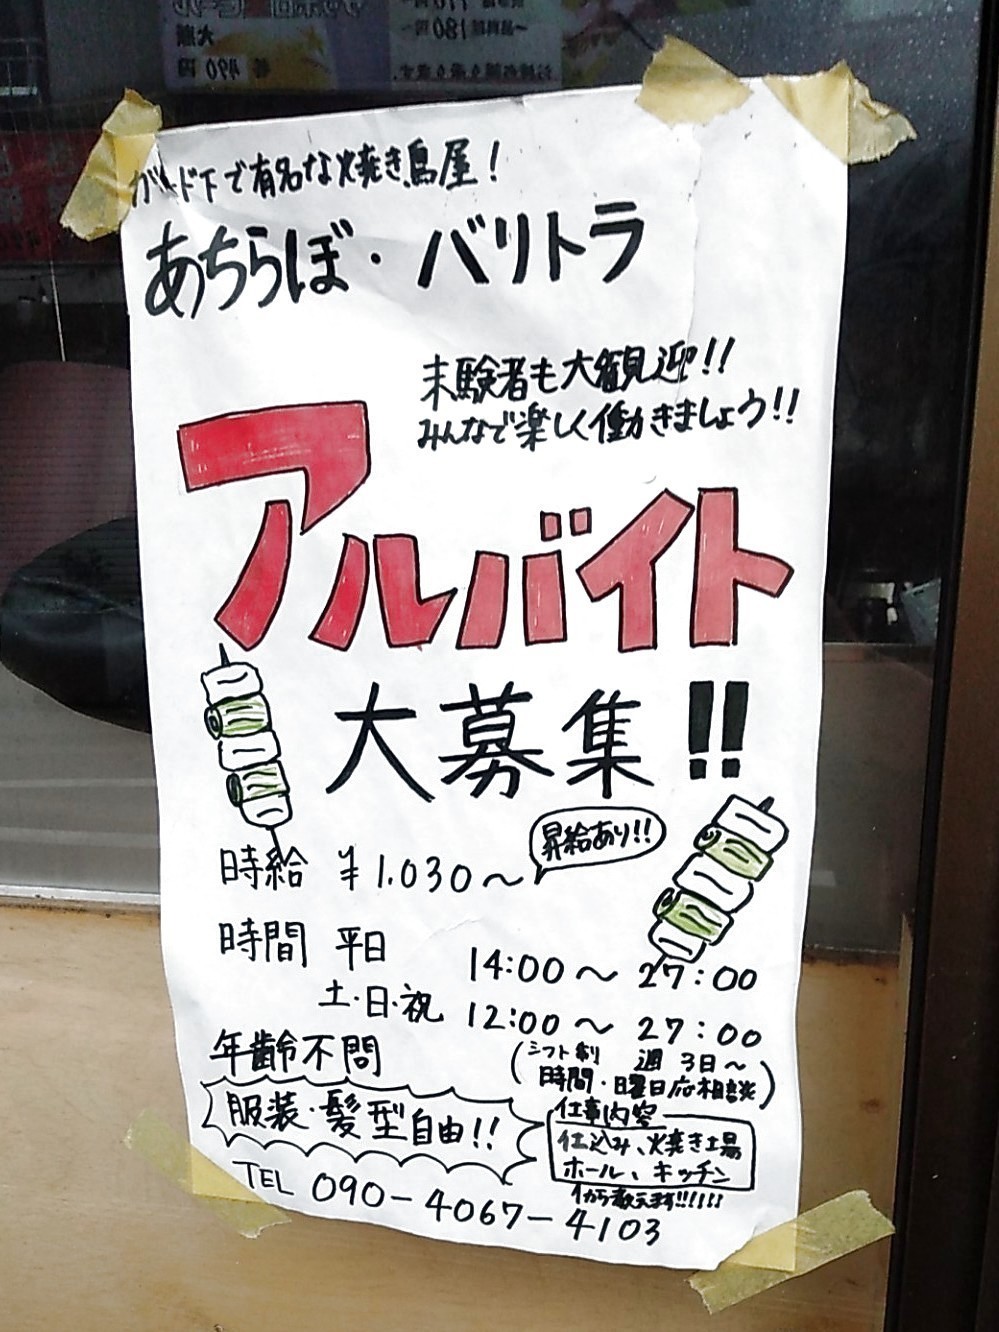 大瓶
490円
ガード下で有名な焼き鳥屋!
あちらぼ・バリトラ
未験者も大観迎!!
みんなで楽しく働きましょう!!
アルバイト
大募集!!
時給 ¥1.030〜
昇給あり!!
時間 平日 14:00〜27:00
土・日・祝 12:00〜27:00
(シフト制 週3日〜
時間・曜日応相談)
年齢不問
服装・髪型自由!!
仕事内容
仕込み、焼き場
ホール、キッチン
1から教えます!!!!!!
TEL 090-4067-4103